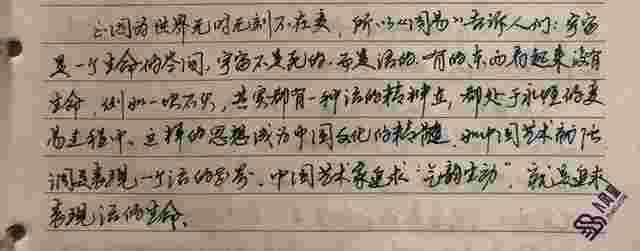 正因为世界无时无刻不在变，所以《周易》告诉人们：宇宙
是一个生命的空间，宇宙不是死的，而是活的。有的东西看起来没有
生命，例如一块石头，其实都有一种活的精神在，都处于永恒的变
易过程中。这样的思想成为中国文化的精髓，如中国艺术就强
调要表现一个活的世界。中国艺术家追求“气韵生动”，就是追求
表现活的生命。